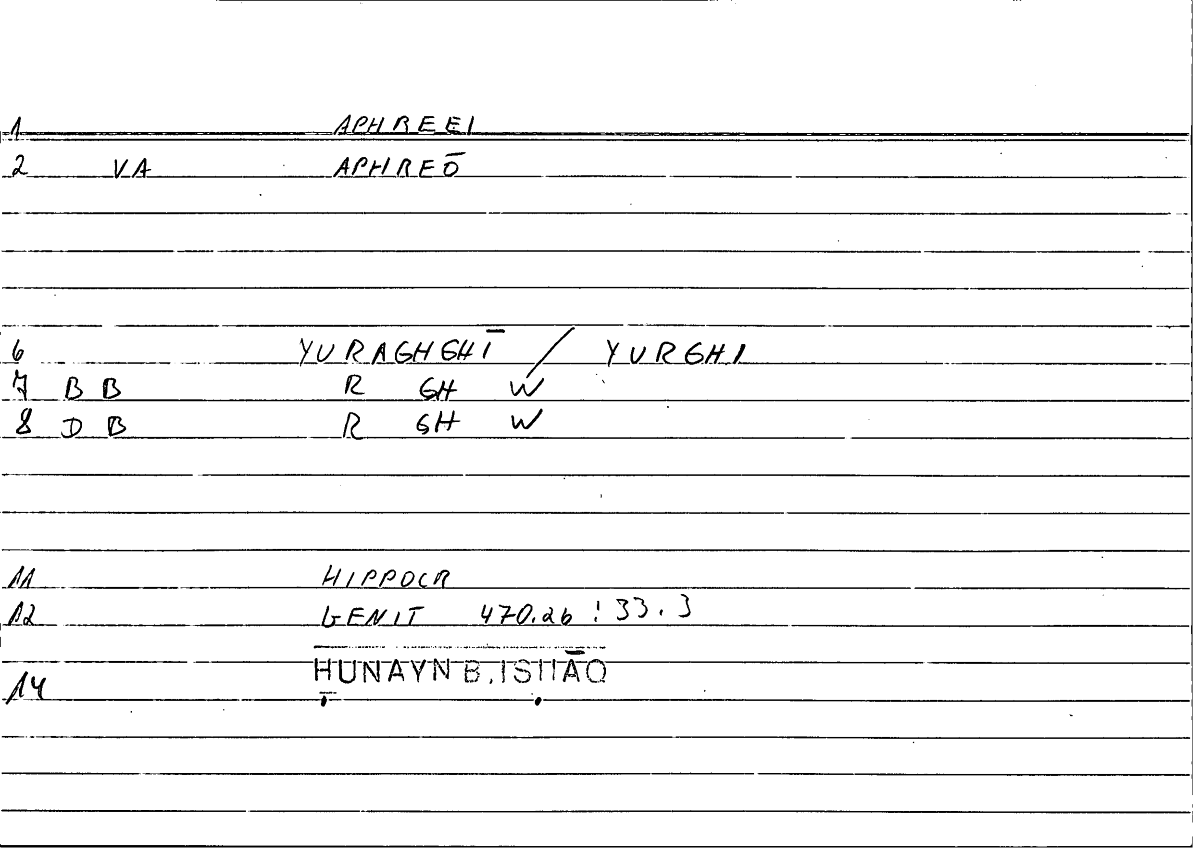 1 APHREEI
2 VA APHREŌ
6 YURAGHGHĪ / YURGHI
7 B B R GH W
8 D B R GH W
11 HIPPOCR
12 GENIT 470.26 : 33.3
14 ḤUNAYN B. ISḤĀQ